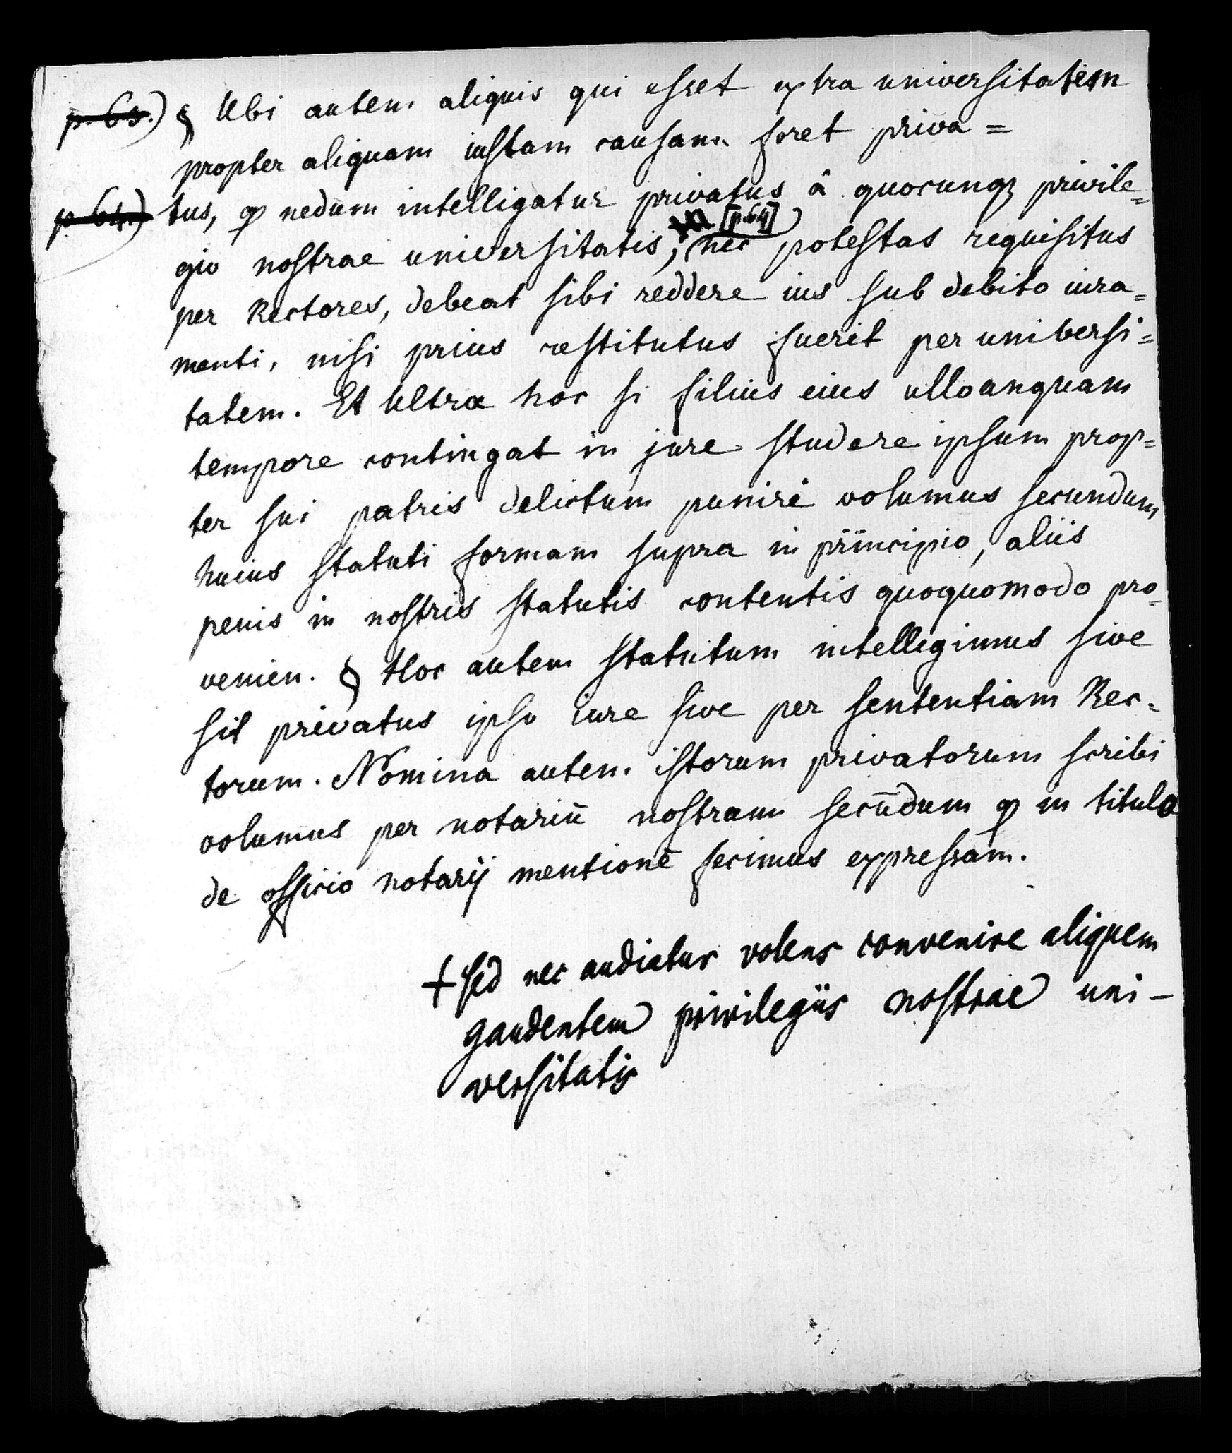 p. 63.) § Ubi autem aliquis qui esset extra universitatem
propter aliquam iustam causam foret priva=
p. 64.) tus, qʒ nedum intelligatur privatus â quocunqʒ privile=
gio nostrae universitatis, [p.64] nec potestas requisitus
per Rectores, debeat sibi reddere ius sub debito iura=
menti, nisi prius restitutus fuerit per universi=
tatem. Et ultra hoc si filius eius ullounquam
tempore contingat in jure studere ipsum prop=
ter sui patris delictum punire volumus secundum
huius statuti formam supra in principio, aliis
penis in nostris statutis contentis quoquomodo pro=
venien. § Hoc autem statutum intelligimus sive
sit privatus ipso iure sive per sententiam Rec=
torum. Nomina autem istorum privatorum scribi
volumus per notariū nostrum secūdum qʒ in titulo
de officio notarij mentionē fecimus expressam.
+ sed nec audiatur volens convenire aliquem
gaudentem privilegiis nostrae uni-
versitatis